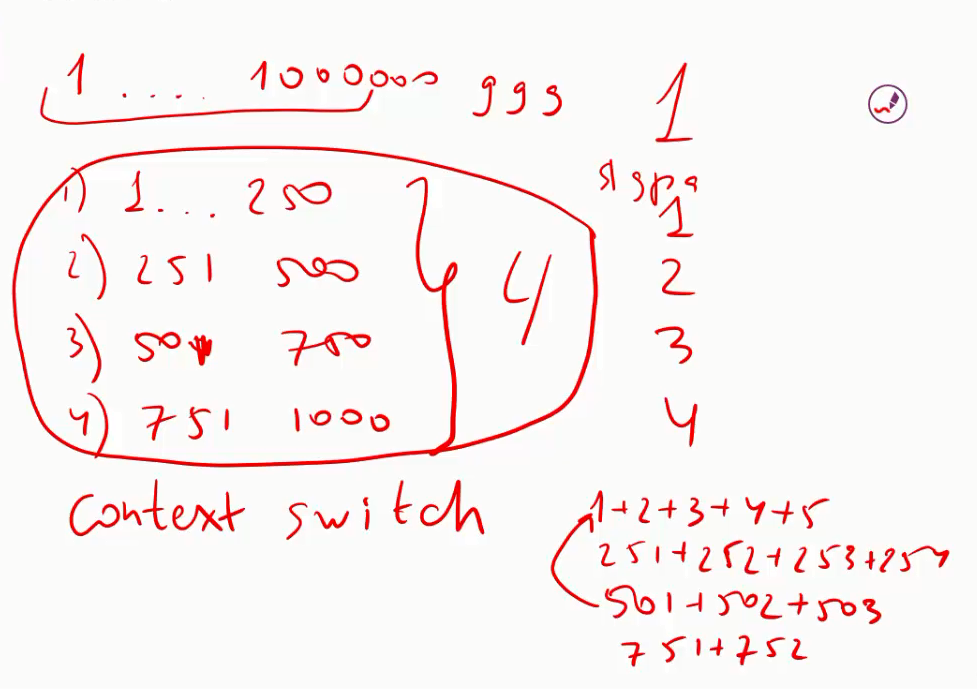 1 .... 1000000 999 1
ядра
1) 1 ... 250 1
2) 251 500 4 2
3) 501 750 3
4) 751 1000 4
context switch
1+2+3+4+5
251+252+253+254
501+502+503
751+752